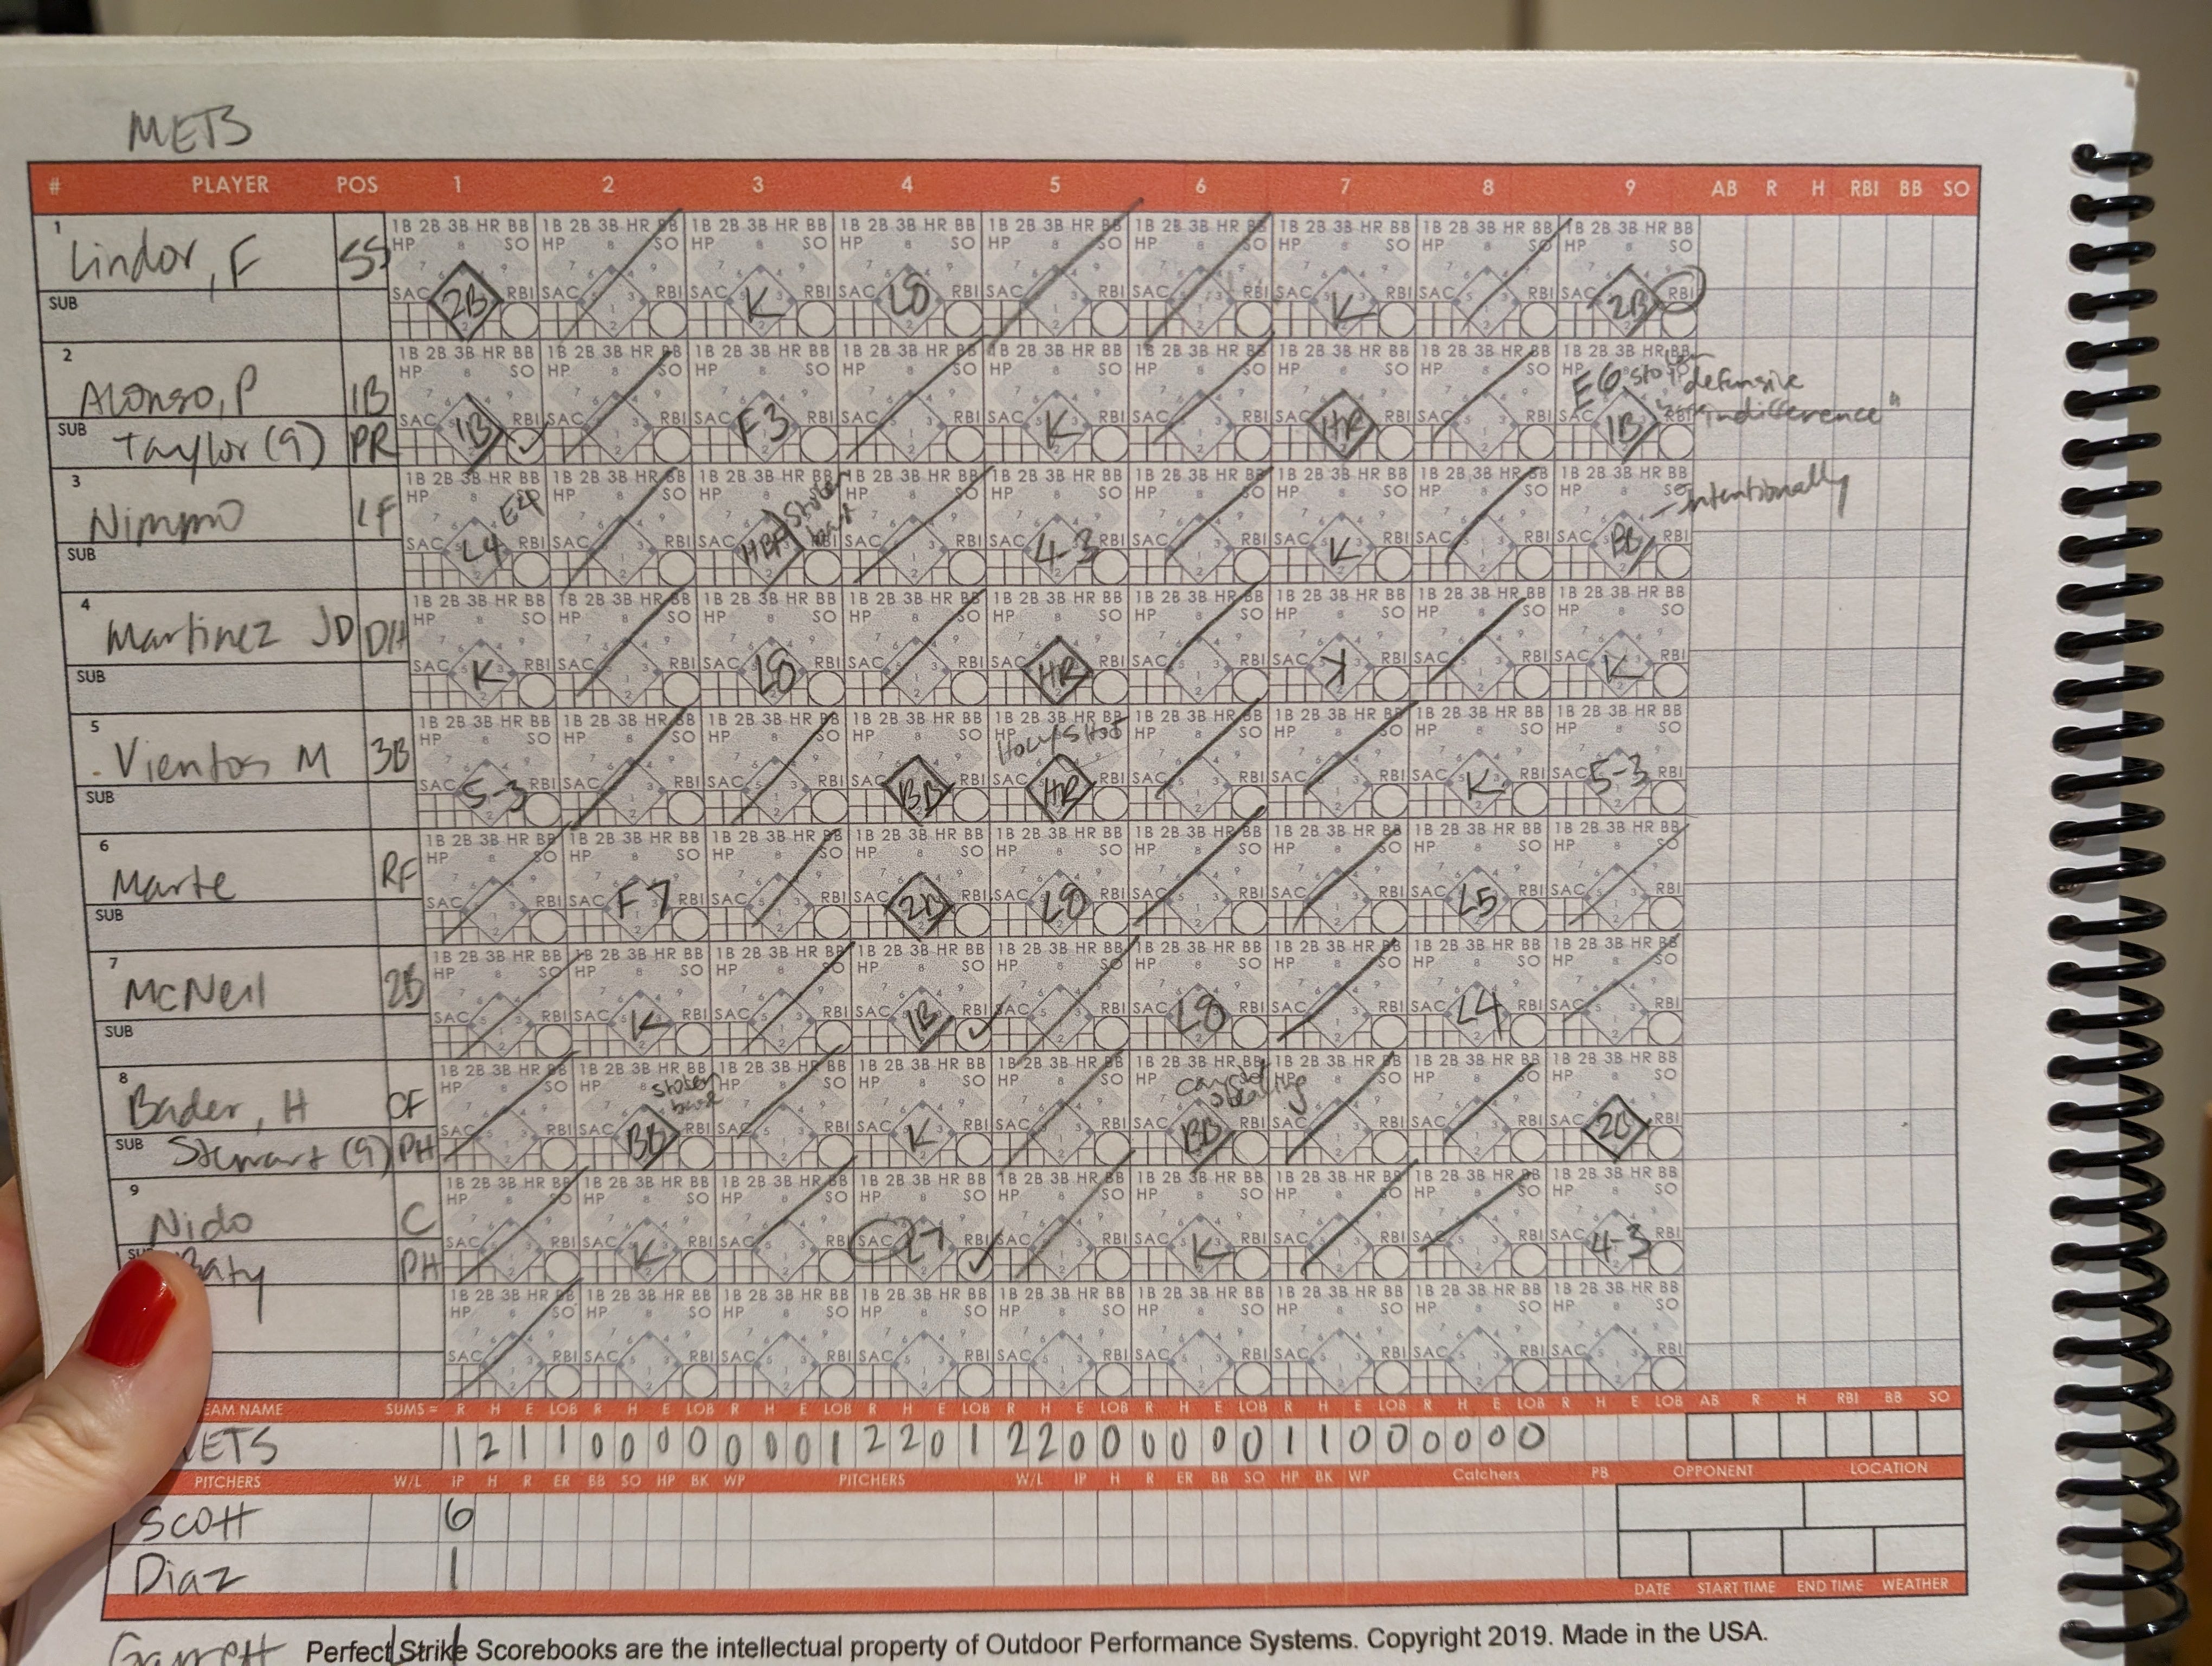 METS
# PLAYER POS 1 2 3 4 5 6 7 8 9 AB R H RBI BB SO
1 Lindor, F SS 2B K L8 K 2B RBI
SUB
2 Alonso, P 1B 1B F3 K HR E6 1B defensive indifference"
SUB Taylor (9) PR
3 Nimmo LF L4 E4 HBP Stolen base 4-3 K BB - intentionally
SUB
4 Martinez JD DH K L8 HR K K
SUB
5 Vientos M 3B 5-3 BB Holy Shit HR K 5-3
SUB
6 Marte RF F7 2B L8 L5
SUB
7 McNeil 2B K 1B L8 L4
SUB
8 Bader, H CF stolen base BB K caught stealing BB 2B
SUB Stewart (9) PH
9 Nido C K SAC L7 K 4-3
Baty PH
EAM NAME SUMS = R H E LOB R H E LOB R H E LOB R H E LOB R H E LOB R H E LOB R H E LOB R H E LOB R H E LOB AB R H RBI BB SO
METS 1 2 1 1 0 0 0 0 0 0 0 1 2 2 0 1 2 2 0 0 0 0 0 0 1 1 0 0 0 0 0 0
PITCHERS W/L IP H R ER BB SO HP BK WP PITCHERS W/L IP H R ER BB SO HP BK WP Catchers PB OPPONENT LOCATION
Scott 6
Diaz 1
DATE START TIME END TIME WEATHER
Garrett Perfect Strike Scorebooks are the intellectual property of Outdoor Performance Systems. Copyright 2019. Made in the USA.